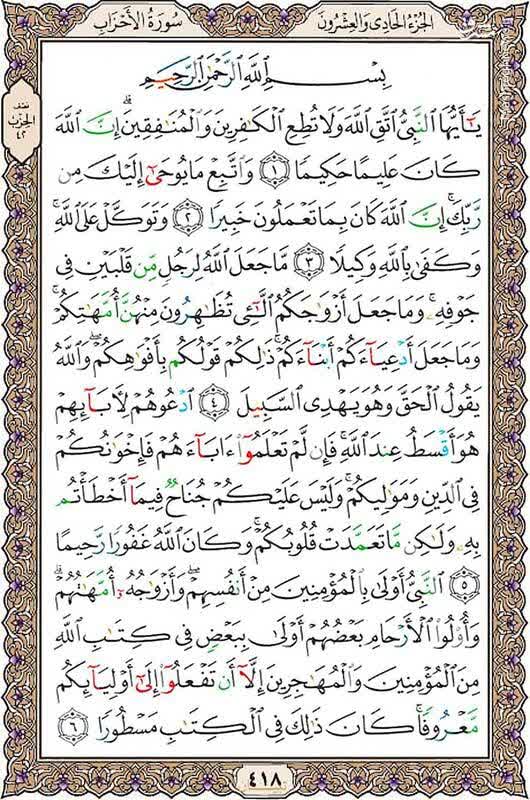 الجُزْءُ الحَادِى وَالعِشْرُونَ
سُورَةُ الأَحْزَابِ
نصف
الحِزْب
٤٢
بِسْمِ ٱللَّهِ ٱلرَّحْمَٰنِ ٱلرَّحِيمِ
يَٰٓأَيُّهَا ٱلنَّبِىُّ ٱتَّقِ ٱللَّهَ وَلَا تُطِعِ ٱلْكَٰفِرِينَ وَٱلْمُنَٰفِقِينَ ۗ إِنَّ ٱللَّهَ
كَانَ عَلِيمًا حَكِيمًا ١ وَٱتَّبِعْ مَا يُوحَىٰٓ إِلَيْكَ مِن
رَّبِّكَ ۚ إِنَّ ٱللَّهَ كَانَ بِمَا تَعْمَلُونَ خَبِيرًا ٢ وَتَوَكَّلْ عَلَى ٱللَّهِ ۚ
وَكَفَىٰ بِٱللَّهِ وَكِيلًا ٣ مَّا جَعَلَ ٱللَّهُ لِرَجُلٍ مِّن قَلْبَيْنِ فِى
جَوْفِهِۦ ۚ وَمَا جَعَلَ أَزْوَٰجَكُمُ ٱلَّٰٓـِٔى تُظَٰهِرُونَ مِنْهُنَّ أُمَّهَٰتِكُمْ ۚ
وَمَا جَعَلَ أَدْعِيَآءَكُمْ أَبْنَآءَكُمْ ۚ ذَٰلِكُمْ قَوْلُكُم بِأَفْوَٰهِكُمْ ۖ وَٱللَّهُ
يَقُولُ ٱلْحَقَّ وَهُوَ يَهْدِى ٱلسَّبِيلَ ٤ ٱدْعُوهُمْ لِءَابَآئِهِمْ
هُوَ أَقْسَطُ عِندَ ٱللَّهِ ۚ فَإِن لَّمْ تَعْلَمُوٓا۟ ءَابَآءَهُمْ فَإِخْوَٰنُكُمْ
فِى ٱلدِّينِ وَمَوَٰلِيكُمْ ۚ وَلَيْسَ عَلَيْكُمْ جُنَاحٌ فِيمَآ أَخْطَأْتُم
بِهِۦ وَلَٰكِن مَّا تَعَمَّدَتْ قُلُوبُكُمْ ۚ وَكَانَ ٱللَّهُ غَفُورًا رَّحِيمًا
٥ ٱلنَّبِىُّ أَوْلَىٰ بِٱلْمُؤْمِنِينَ مِنْ أَنفُسِهِمْ ۖ وَأَزْوَٰجُهُۥٓ أُمَّهَٰتُهُمْ ۗ
وَأُو۟لُوا۟ ٱلْأَرْحَامِ بَعْضُهُمْ أَوْلَىٰ بِبَعْضٍ فِى كِتَٰبِ ٱللَّهِ
مِنَ ٱلْمُؤْمِنِينَ وَٱلْمُهَٰجِرِينَ إِلَّآ أَن تَفْعَلُوٓا۟ إِلَىٰٓ أَوْلِيَآئِكُم
مَّعْرُوفًا ۚ كَانَ ذَٰلِكَ فِى ٱلْكِتَٰبِ مَسْطُورًا ٦
٤١٨